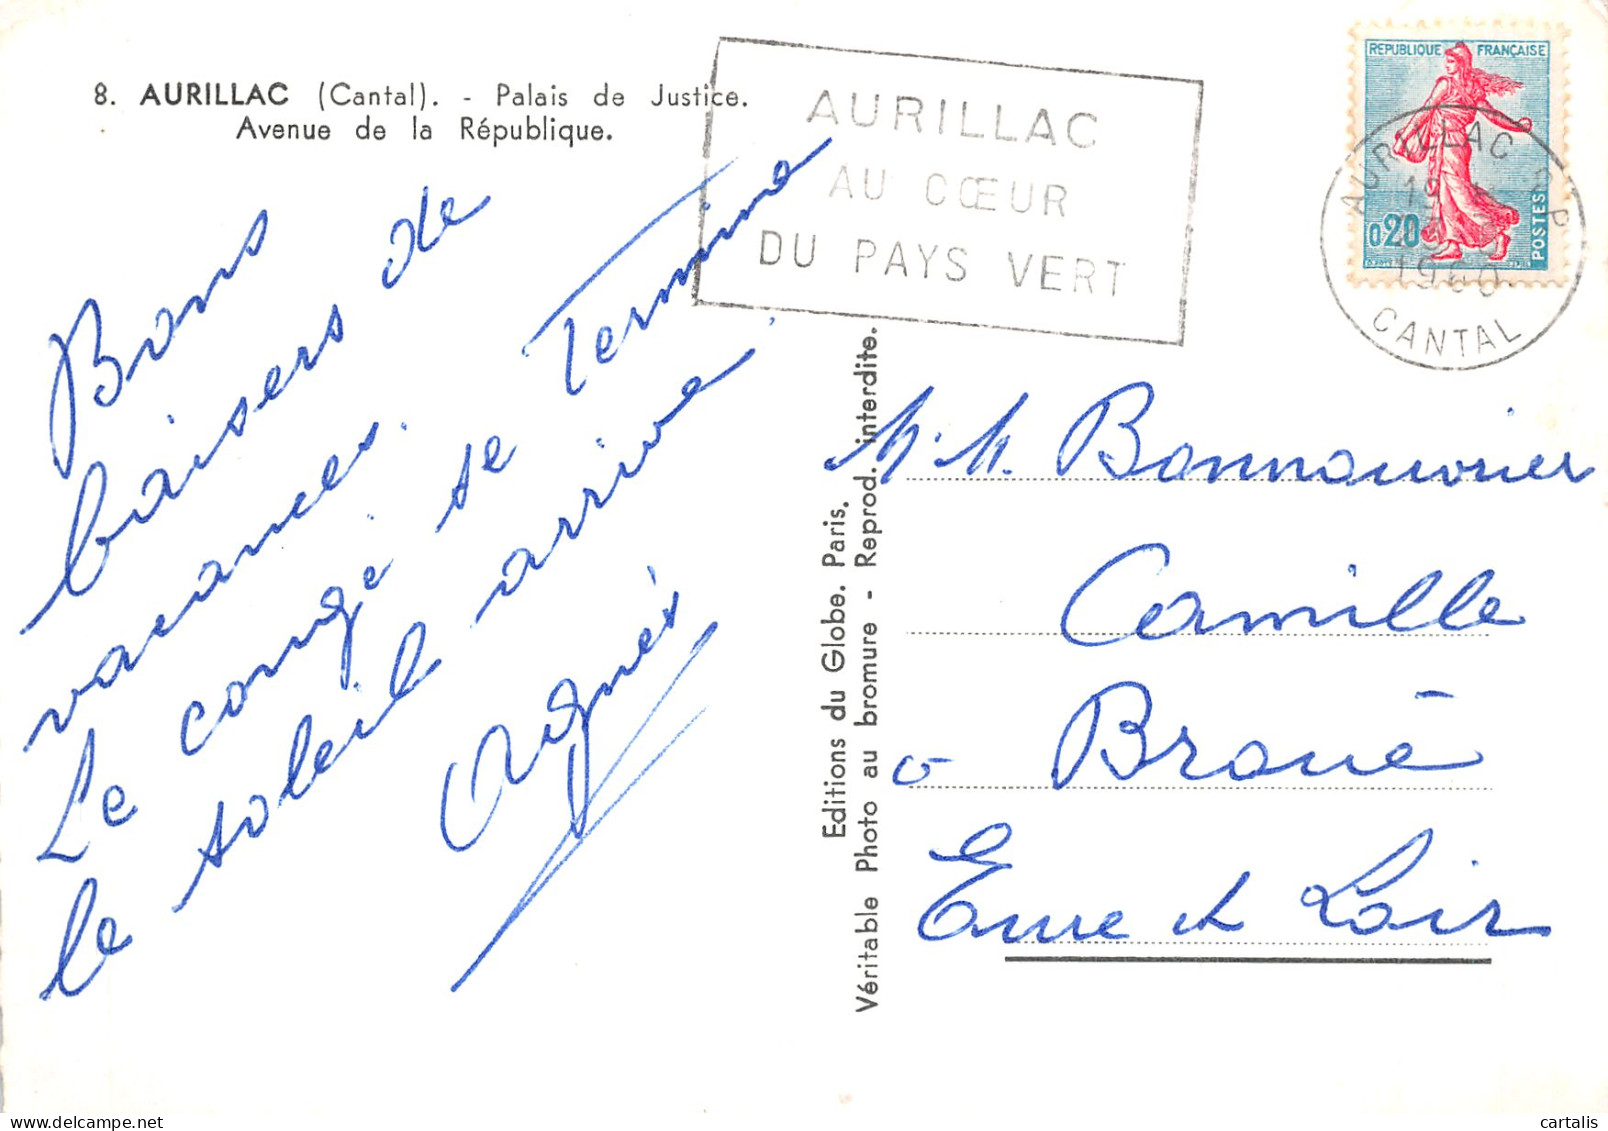 8. AURILLAC (Cantal). - Palais de Justice.
Avenue de la République.
AURILLAC
AU CŒUR
DU PAYS VERT
REPUBLIQUE FRANÇAISE
0,20
POSTES
AURILLAC R.P.
1960
CANTAL
Bons
baisers de
vacances.
Le congé se termine
le soleil arrive!
Agnès
Editions du Globe. Paris.
Véritable Photo au bromure - Reprod. interdite.
M. M. Bonnouvrier
Camille
à Broué
Eure et Loir
cartalis